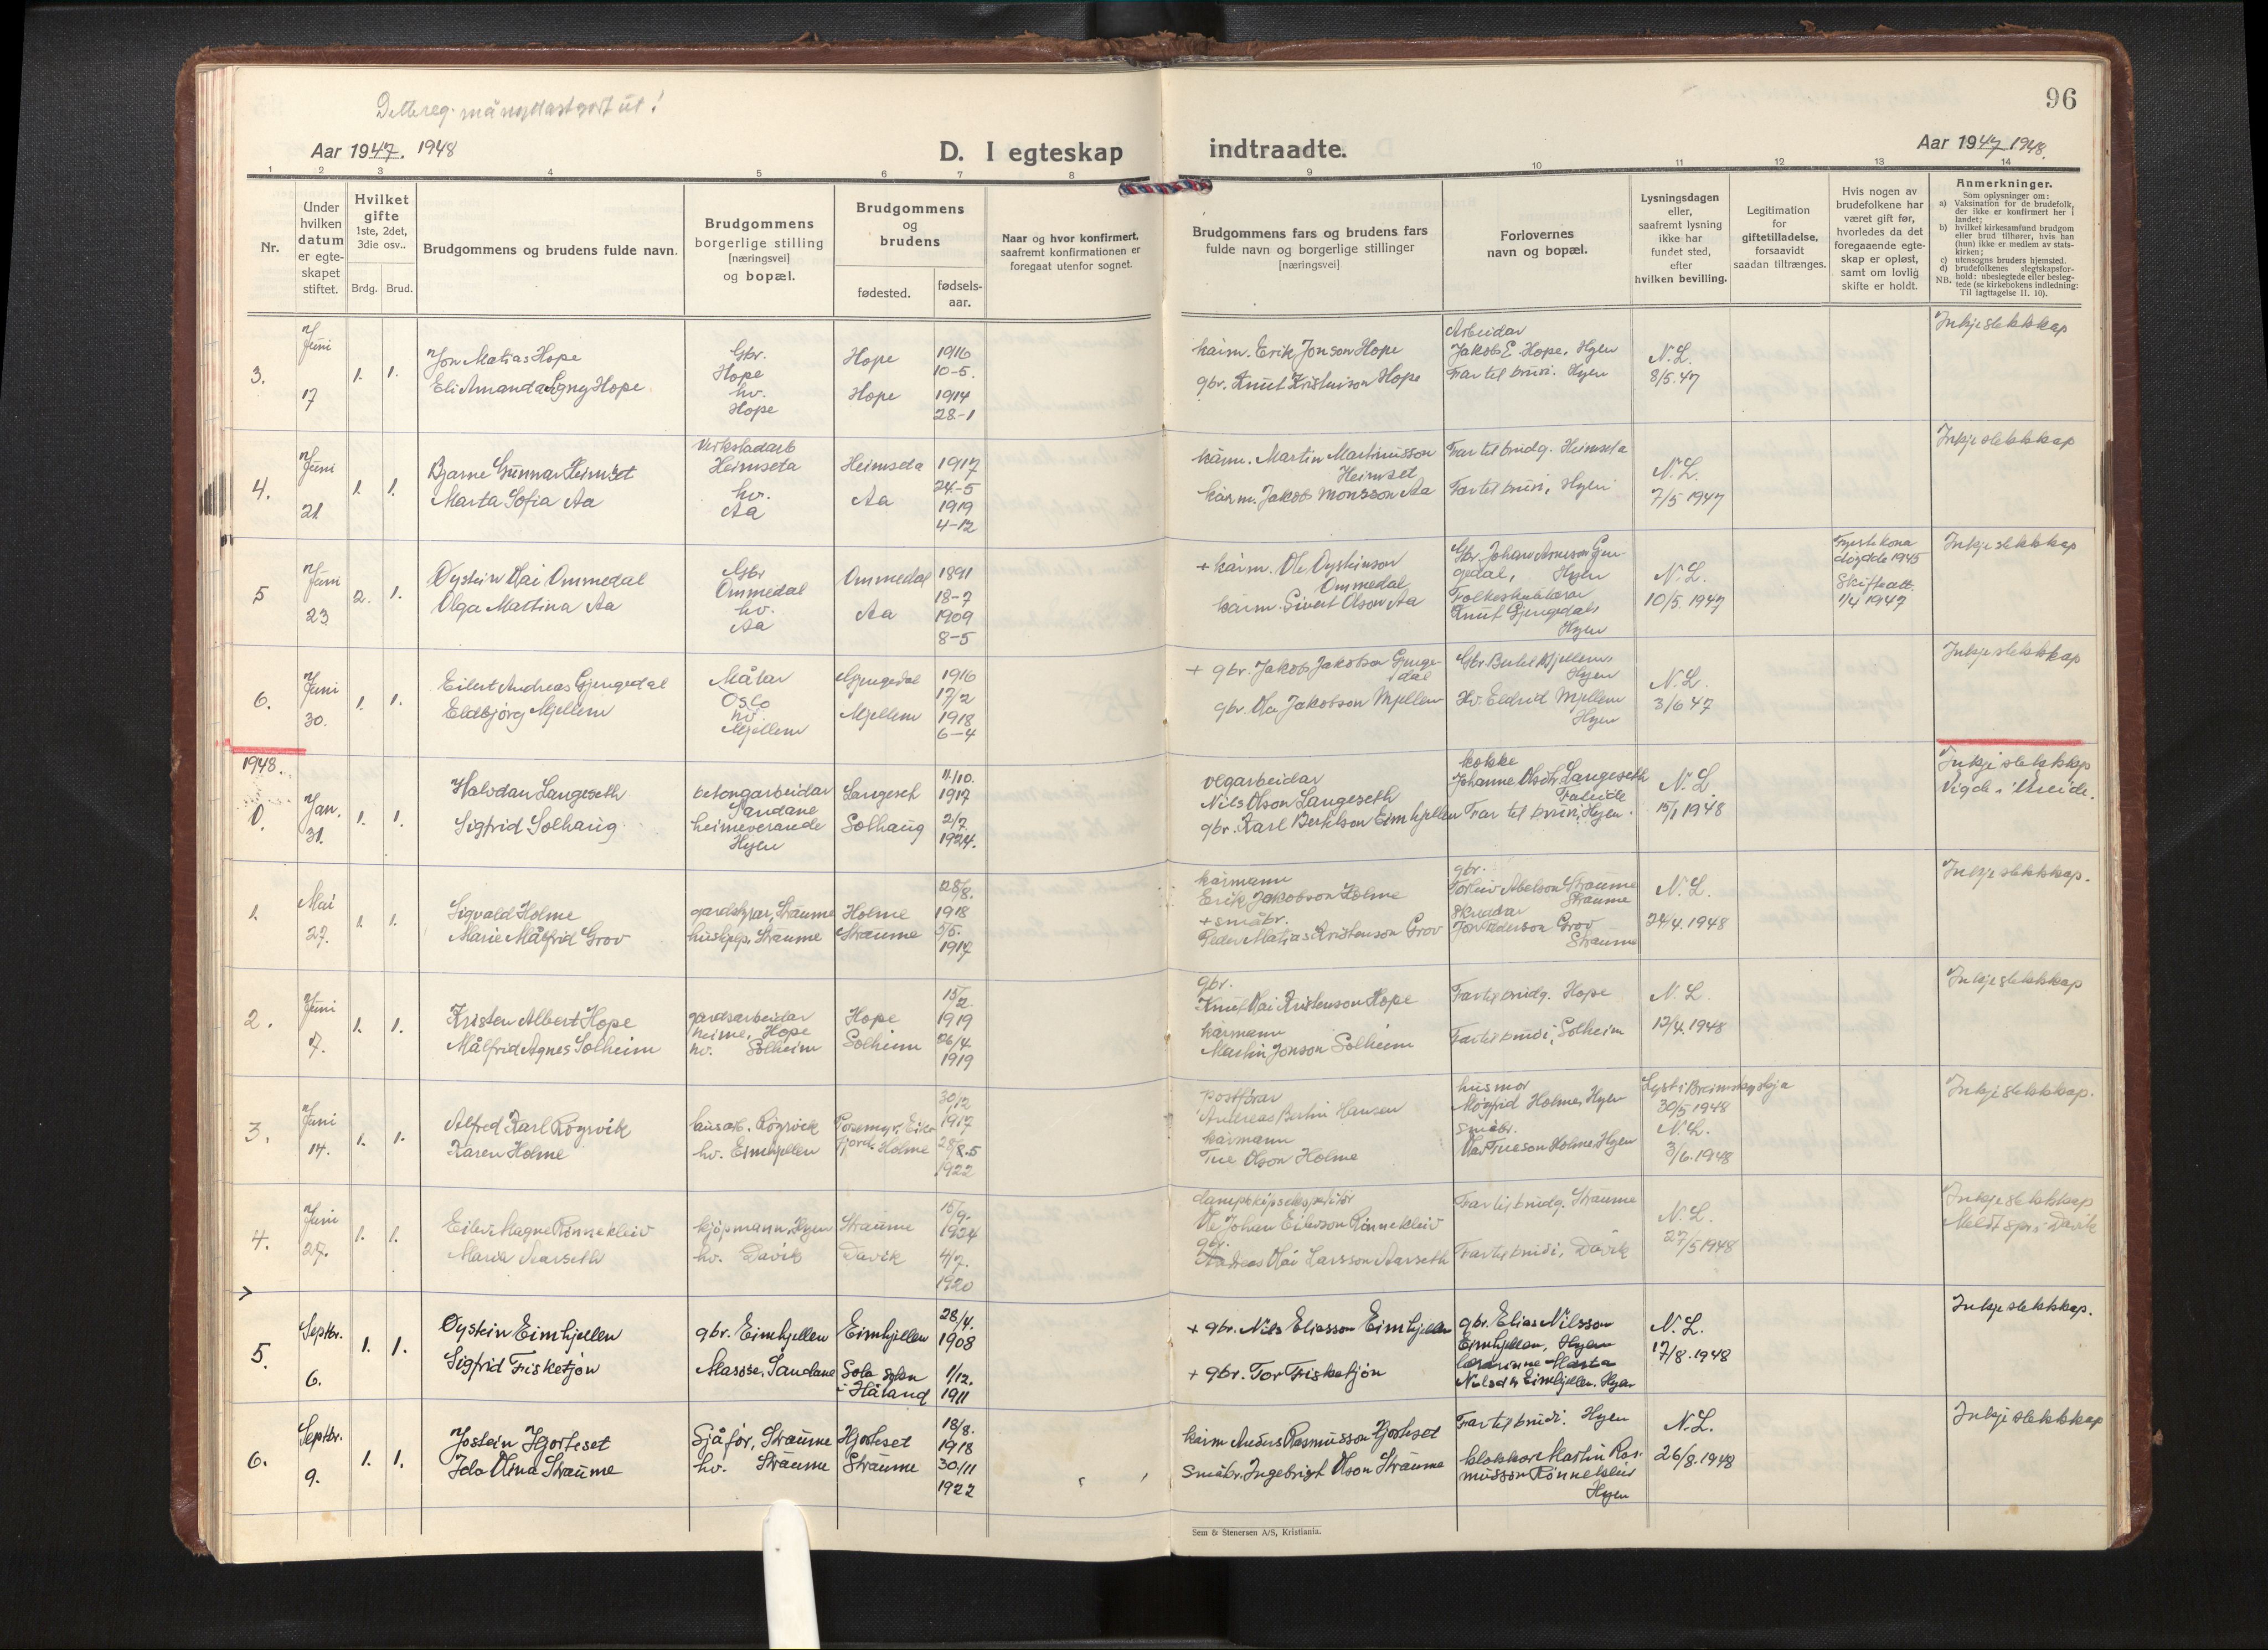 96
Aar 1947. 1948
D. I egteskap indtraadte.
Aar 1947 1948.
1 2 3 4 5 6 7 8 9 10 11 12 13 14
Nr.
Under hvilken datum er egteskapet stiftet.
Hvilket gifte 1ste, 2det, 3die osv..
Brdg. Brud.
Brudgommens og brudens fulde navn.
Brudgommens borgerlige stilling [næringsvei] og bopæl.
Brudgommens og brudens
fødested.
fødsels-aar.
Naar og hvor konfirmert, saafremt konfirmationen er foregaat utenfor sognet.
Brudgommens fars og brudens fars fulde navn og borgerlige stillinger [næringsvei]
Forlovernes navn og bopæl.
Lysningsdagen eller, saafremt lysning ikke har fundet sted, efter hvilken bevilling.
Legitimation for giftetilladelse, forsaavidt saadan tiltrænges.
Hvis nogen av brudefolkene har været gift før, hvorledes da det foregaaende egteskap er opløst, samt om lovlig skifte er holdt.
Anmerkninger.
Som oplysninger om:
a) Vaksination for de brudefolk, der ikke er konfirmert her i landet;
b) hvilket kirkesamfund brudgom eller brud tilhører, hvis han (hun) ikke er medlem av statskirken;
c) utensogns bruders hjemsted.
d) brudefolkenes slegtskapsforhold: ubeslegtede eller beslegtede (se kirkebokens indledning:
NB. Til iagttagelse II. 10).
3. Juni 17 1. 1.
Jon Matias Hope
Eli Amanda Agny Hope
Gbr. Hope
hv. Hope
Hope 1916 10-5.
Hope 1914 28-1
kårm. Erik Jonson Hope
gbr. Knut Kristenson Hope
Arbeidar Jakob E. Hope, Hyen
Far til bruri. Hyen
N.L. 8/5.47
Inkje slektskap
4. Juni 21 1. 1.
Bjarne Gunnar Heimset
Marta Sofia Aa
Verkstadarb Heimseta
hv. Aa
Heimseta 1917 24-5
Aa 1919 4-12
kårm. Martin Martinusson Heimset
kårm. Jakob Monsson Aa
Far til brudg. Heimseta
Far til bruri, Hyen
N.L. 7/5 1947
Inkje slektskap
5 Juni 23 2. 1.
Øystein Olai Ommedal
Olga Martina Aa
Gbr Ommedal
hv. Aa
Ommedal 1891 18-7
Aa 1909 8-5
+ kårm. Ole Øysteinson Ommedal
kårm. Sivert Olson Aa
Gbr. Johan Arneson Gjengedal, Hyen
Folkeskulelærar Knut Gjengedal, Hyen
N.L. 10/5. 1947
Fyrste kona døydde 1945
Skifteatt. 1/4 1947
Inkje slektskap
6. Juni 30. 1. 1.
Eilert Andreas Gjengedal
Eldbjørg Mjellem
Målar Oslo
hv. Mjellem
Gjengedal 1916 17/2
Mjellem 1918 6-4
+ gbr. Jakob Jakobson Gjengedal
gbr. Ola Jakobson Mjellem
Gbr. Bertel Mjellem, Hyen
Hv. Eldrid Mjellem Hyen
N.L. 3/6 47
Inkje slektskap
1948.
0. Jan. 31. 1. 1.
Halvdan Langeseth
Sigfrid Solhaug
betongarbeidar Sandane
heimeverande Hyen
Langeseth 11/10. 1917
Solhaug 2/7 1924.
vegarbeidar Nils Olson Langeseth
gbr. Karl Bertelson Eimhjellen
kokke Johanne Olsdtr. Langeseth Faleide
Far til bruri, Hyen.
N.L. 15/1 1948
Inkje slektskap
Vigde i Breide.
1. Mai 27. 1. 1.
Sigvald Holme
Marie Målfrid Grov
gardstyrar, Straume
huskjep. Straume
Holme 28/8. 1918
Straume 5/5. 1917
kårmann Erik Jakobson Holme
+ småbr. Peder Matias Kristenson Grov
gbr. Torleiv Abelson Straume Straume
Skreddar Jon Pederson Grov Straume
N.L. 24/4. 1948
Inkje slektskap.
2. Juni 7. 1. 1.
Kristen Albert Hope
Målfrid Agnes Solheim
gardsarbeidar heime, Hope
hv. Solheim
Hope 15/2. 1919
Solheim 26/4. 1919
gbr. Knut Olai Kristenson Hope
kårmann Martin Jonson Solheim
Far til brudg. Hope
Far til bruri, Solheim
N.L. 12/4. 1948
Inkje slektskap
3. Juni 14. 1. 1.
Alfred Karl Røgsvik
Karen Holme
hv. Eimhjellen
30/12 1917
Holme 28/8.5 1922
postførar Andreas Bertin Hansen
kårmann Tue Olson Holme
husmor Møyfrid Holme, Hyen
småbr. Ola Tueson Holme, Hyen
Lyst i Breimskyrkja 30/5 1948
N.L. 3/6. 1948
Inkje slektskap.
4. Juni 27. 1. 1.
Eilert Magne Rønnekleiv
Marta Aarseth
kjøpmann, Hyen
hv. Davik
Straume 15/9. 1924
Davik 4/7. 1920
dampskipsekspeditør Ole Johan Eilertson Rønnekleiv
gbr. Andreas Olai Larsson Aarseth
Far til brudg. Straume
Far til bruri, Davik
N.L. 27/5 1948
Inkje slektskap
5. Septbr. 6. 1. 1.
Øystein Eimhjellen
Sigfrid Frisketjøn
gbr. Eimhjellen
Massøse, Sandane
Eimhjellen 28/4. 1908
Sola sokn i Håland 1/12. 1911
+ gbr. Nils Eliasson Eimhjellen
+ gbr. Tor Frisketjøn
gbr. Elias Nilsson Eimhjellen, Hyen
lærarinne Marta Nilsdtr Eimhjellen. Hyen
N.L. 17/8. 1948
Inkje slektskap.
6. Septbr. 9. 1. 1.
Jostein Hjorteset
Ida Olina Straume
Sjåfør, Straume
hv. Straume
Hjorteset 18/8. 1918
Straume 30/11 1922
kårm Anders Rasmusson Hjorteset
Småbr. Ingebrigt Olson Straume
Far til bruri. Hyen
klokkar Martin Rasmusson Rønnekleiv Hyen
N.L. 26/8. 1948
Inkje slektskap
Sem & Stenersen A/S, Kristiania.